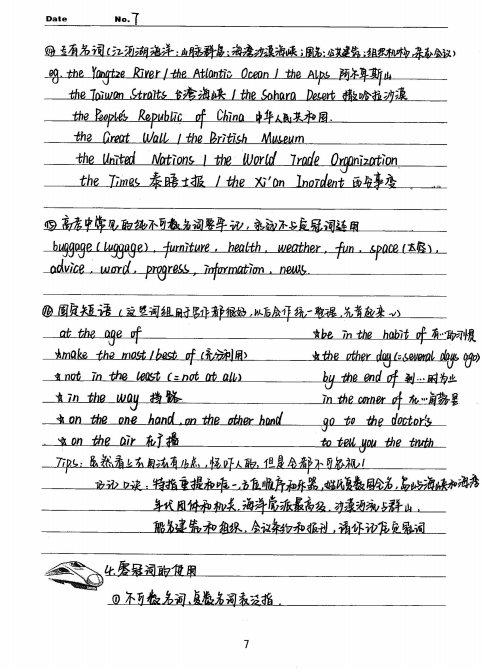 Date No. 7
⑭ 专有名词(江河湖海洋;山脉群岛;海湾沙漠海峡;国名;公共建筑;组织机构,杂志会议)
eg. the Yangtze River / the Atlantic Ocean / the Alps 阿尔卑斯山
the Taiwan Straits 台湾海峡 / the Sahara Desert 撒哈拉沙漠
the People's Republic of China 中华人民共和国.
the Great Wall / the British Museum
the United Nations / the World Trade Organization
the Times 泰晤士报 / the Xi'an Incident 西安事变
⑮ 高考中常见的纯不可数名词要牢记,永远不与定冠词连用
buggage (luggage), furniture, health, weather, fun, space (太空),
advice, word, progress, information, news.
⑯ 固定短语 (这些词组用于写作都很好,以后会作统一整理,先背起来~)
at the age of ☆be in the habit of 有…的习惯
☆make the most/best of (充分利用) ☆the other day (=several days ago)
☆not in the least (= not at all) by the end of 到…时为止
☆in the way 挡路 in the corner of 在…角落里
☆on the one hand, on the other hand go to the doctor's
☆on the air 在广播 to tell you the truth
Tips: 虽然看上去用法有16点,怪吓人的,但是全都不可忽视!
特指重提和唯一,方位顺序和乐器,姓氏复数用
年代团体和机关,海洋党派最高级,沙漠河流与群山,
船名建筑和组织,会议条约和报刊,请你记在定冠词
4. 零冠词的使用
① 不可数名词,复数名词表泛指.
7